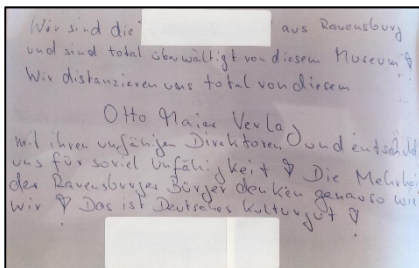 Wir sind die aus Ravensburg
und sind total überwältigt von diesem Museum!
Wir distanzieren uns total von diesem
Otto Maier Verlag
mit ihren unfähigen Direktoren und entschuld
uns für soviel Unfähigkeit! Die Mehrhei
der Ravensburger Bürger denken genauso wie
wir! Das ist Deutsches Kulturgut!